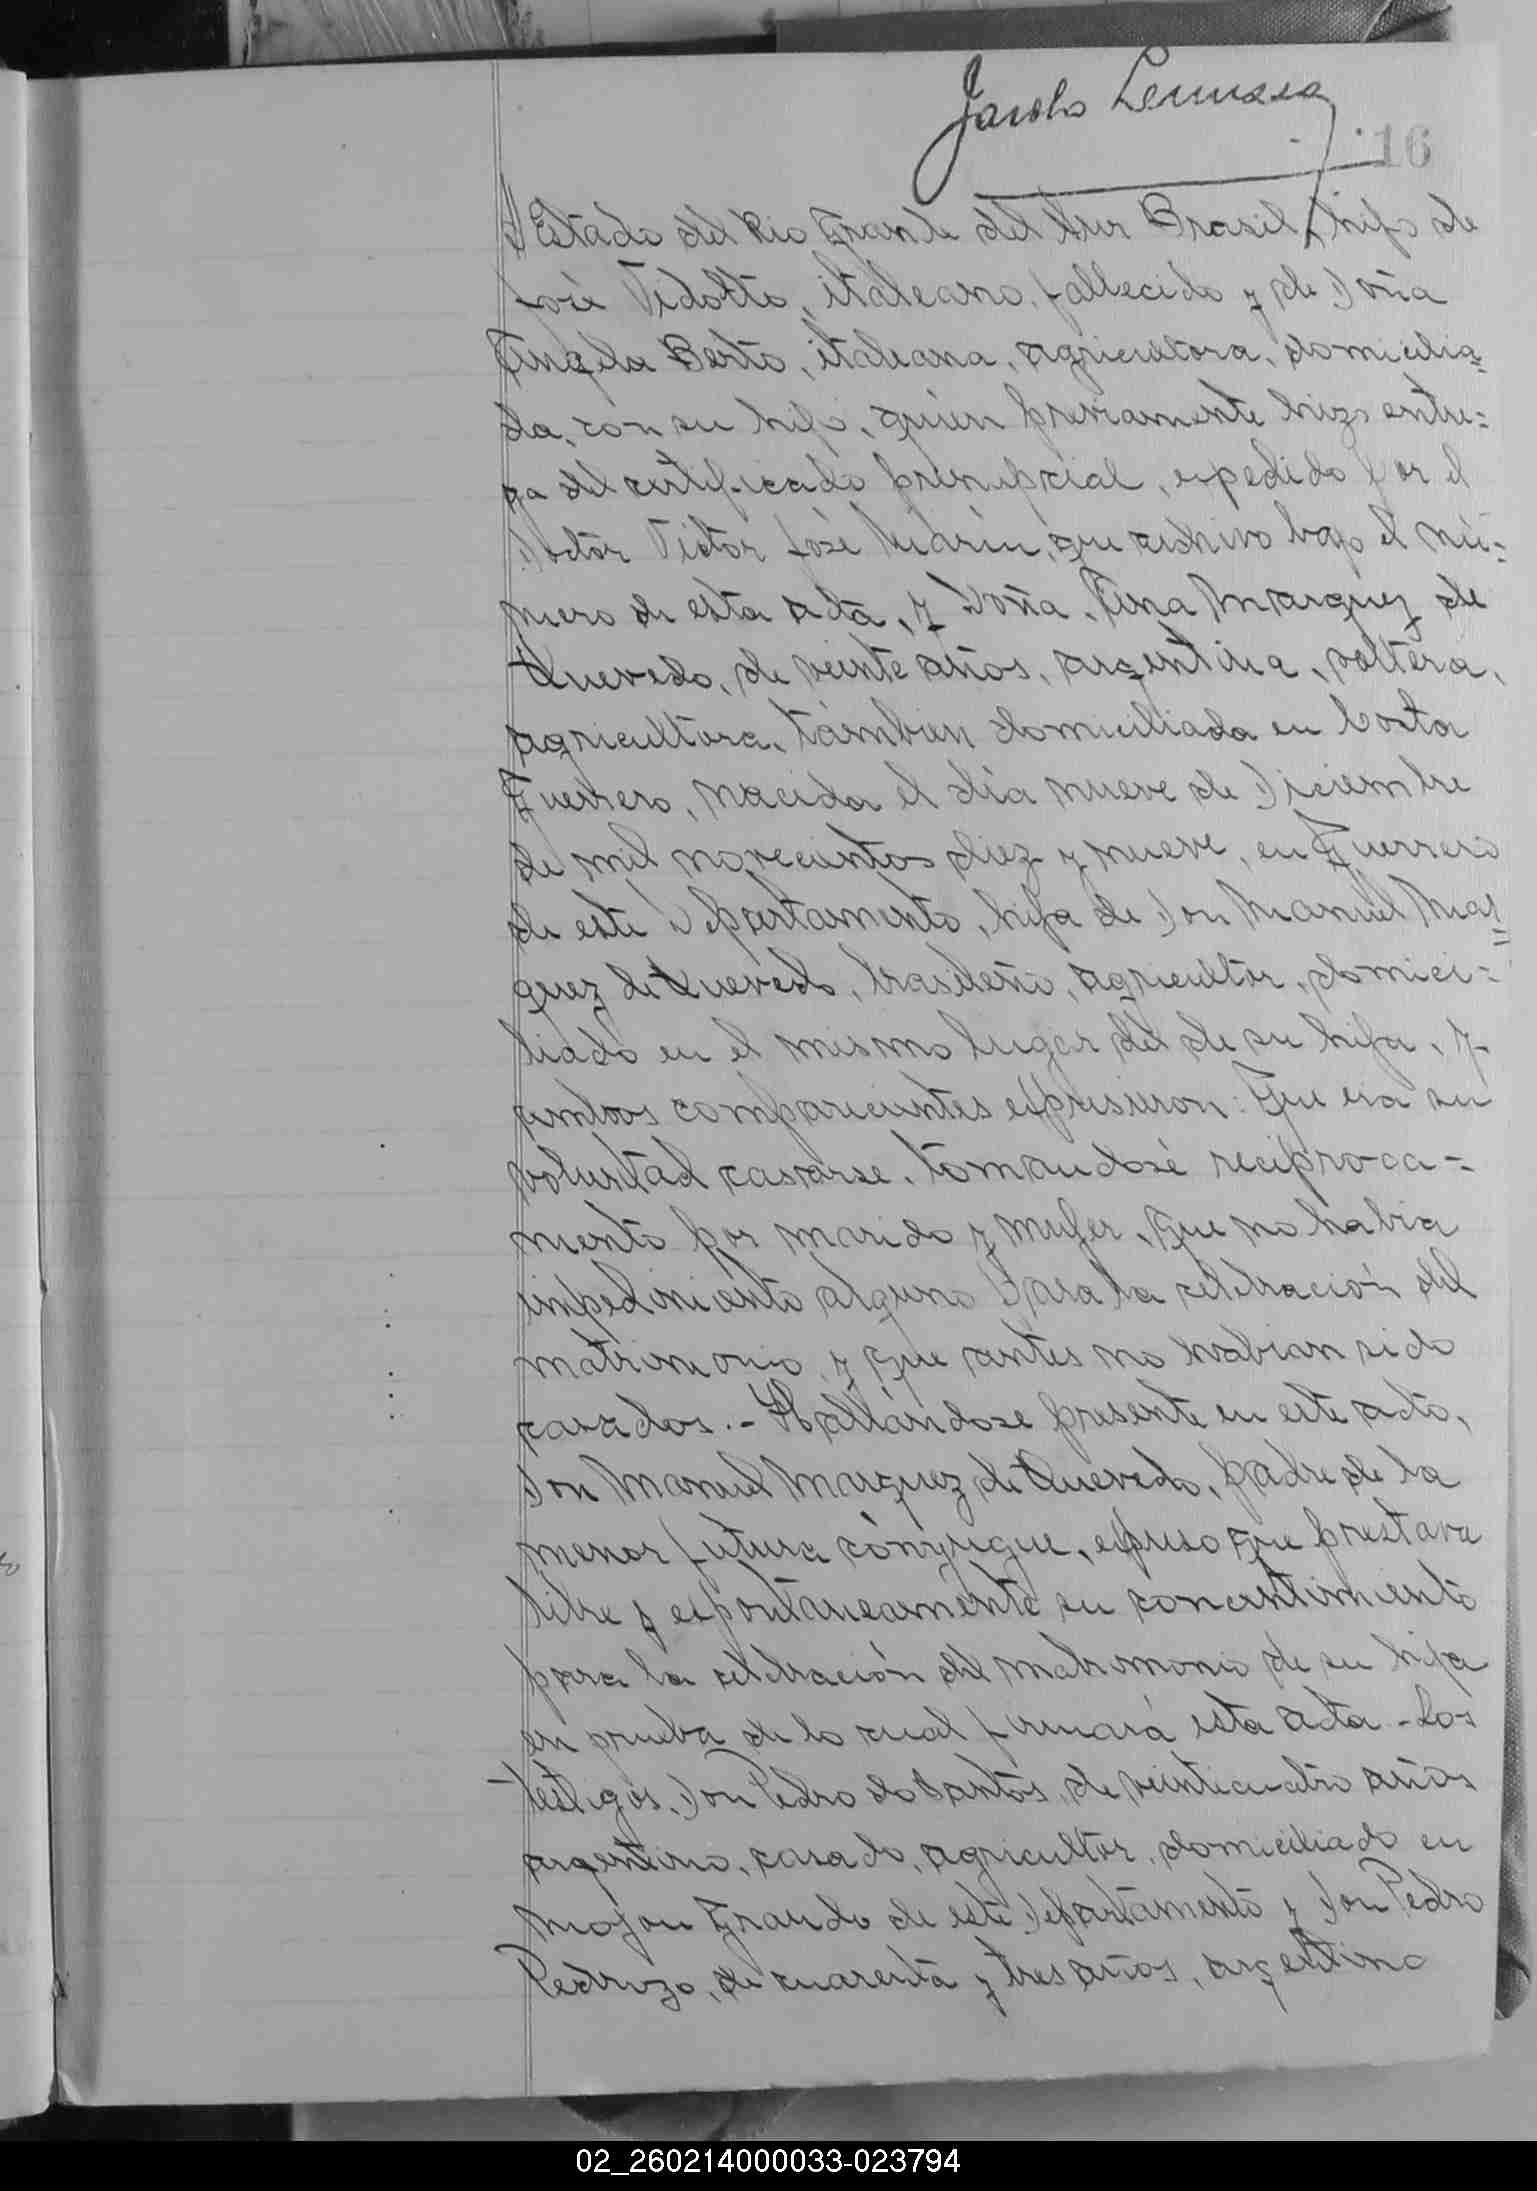 16
Estado del Rio Grande del Sur Brasil, hijo de
José Vidotto, italeano, fallecido y de Doña
Angela Berto, italeana, agricultora, domicilia-
da, con su hijo, quien previamente hizo entre-
ga del certificado prenupcial, expedido por el
Doctor Victor José Marin, que archivo bajo el nú-
mero de esta acta, y Doña Ana Marquez de
Quevedo, de veinte años, argentina, soltera,
agricultora, támbien domiciliada en Costa
Guerrero, nacida el día nueve de Diciembre
de mil novecientos diez y nueve, en Guerrero
de este Departamento, hija de Don Manuel Mar-
quez de Quevedo, brasileño, agricultor, domici-
liado en el mismo lugar del de su hija, y
ambos comparecientes expresieron: Que era su
voluntad casarse, tomandosé reciproca-
mento por marido y mujer, Que no habia
impedimiento alguno para la celebración del
matrimonio y que antes no habian sido
casados.- Hallándose presente en este acto,
Don Manuel Marquez de Quevedo, padre de la
menor futura cónyugue, expreso que prestava
libre y espontaneamente su concentimiento
para la celebración del matrimonio de su hija
en prueba de lo cual firmará esta acta.- Los
testigos, Don Pedro do Santos, de veinticuatro años
argentino, casado, agricultor, domiciliado en
Mojon Grande de este Departamento y Don Pedro
Pedrozo, de cuarenta y tres años, argentino
02_260214000033-023794